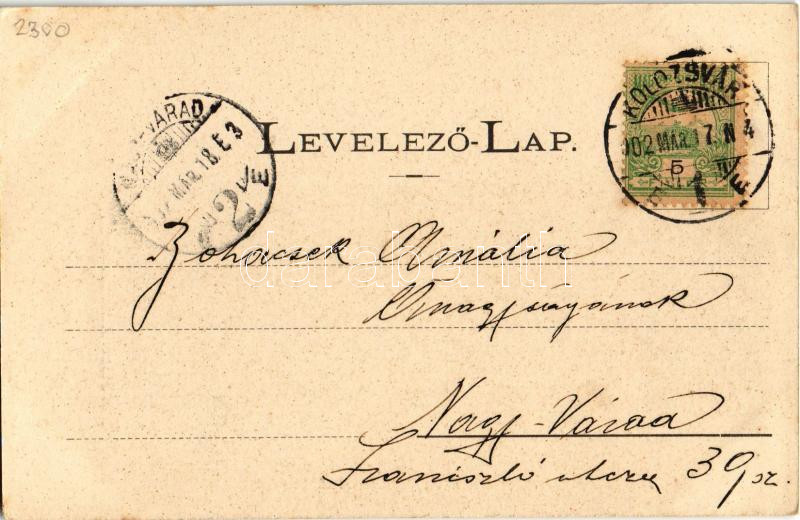 2300
LEVELEZŐ-LAP.
KOLOZSVÁR
902 MÁR. 17. N 4
5
1
VÁRAD
MÁR. 18. E 3
2
Amália
Őnagyságának
Nagy-Várad
Szaniszló utcza 39 sz.